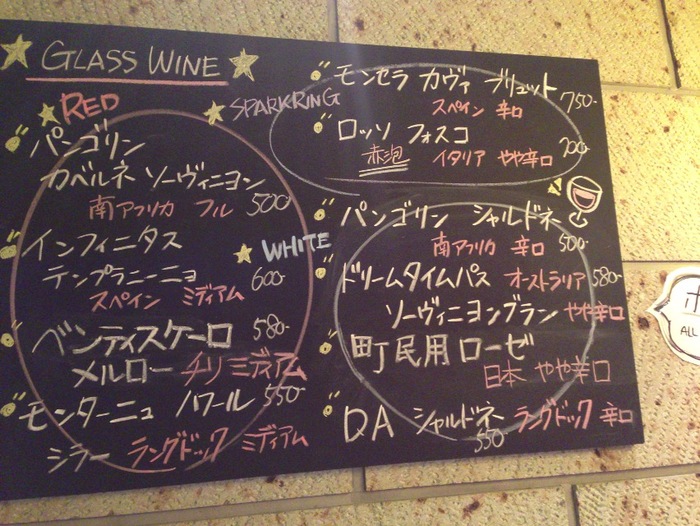 GLASS WINE
RED
パンゴリン
カベルネ ソーヴィニヨン
南アフリカ フル 500-
インフィニタス
テンプラニーニョ 600-
スペイン ミディアム
ベンティスケーロ 580-
メルロー チリ ミディアム
モンターニュ ノワール 550-
シラー ラングドック ミディアム
SPARKRING
モンセラ カヴァ ブリュット 750-
スペイン 辛口
ロッソ フォスコ 700-
赤泡 イタリア やや辛口
WHITE
パンゴリン シャルドネ
南アフリカ 辛口 500-
ドリームタイムパス オーストラリア 580-
ソーヴィニヨンブラン やや辛口
町民用ローゼ
日本 やや辛口
DA シャルドネ ラングドック 辛口
550-
ALL